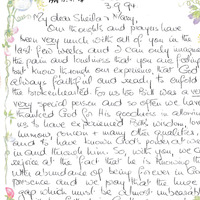 3.9.94
My dear Sheila & Mary,
Our thoughts and prayers have
been very much with all of you in the
last few weeks and I can only imagine
the pain and loneliness that you are feeling
but know through our experience that God
always faithful and ready to enfold
the brokenhearted. To us too Bill was a very
very special person and so often we have
thanked God for His goodness in allowing
us to have experienced his wisdom, love
humour, concern & many other qualities
and to have known God's protectiveness
in and through him. So, with you, we can
rejoice at the fact that he is knowing the
abundance of being forever in God's
presence and we pray that the huge
gap which must be almost unbearable